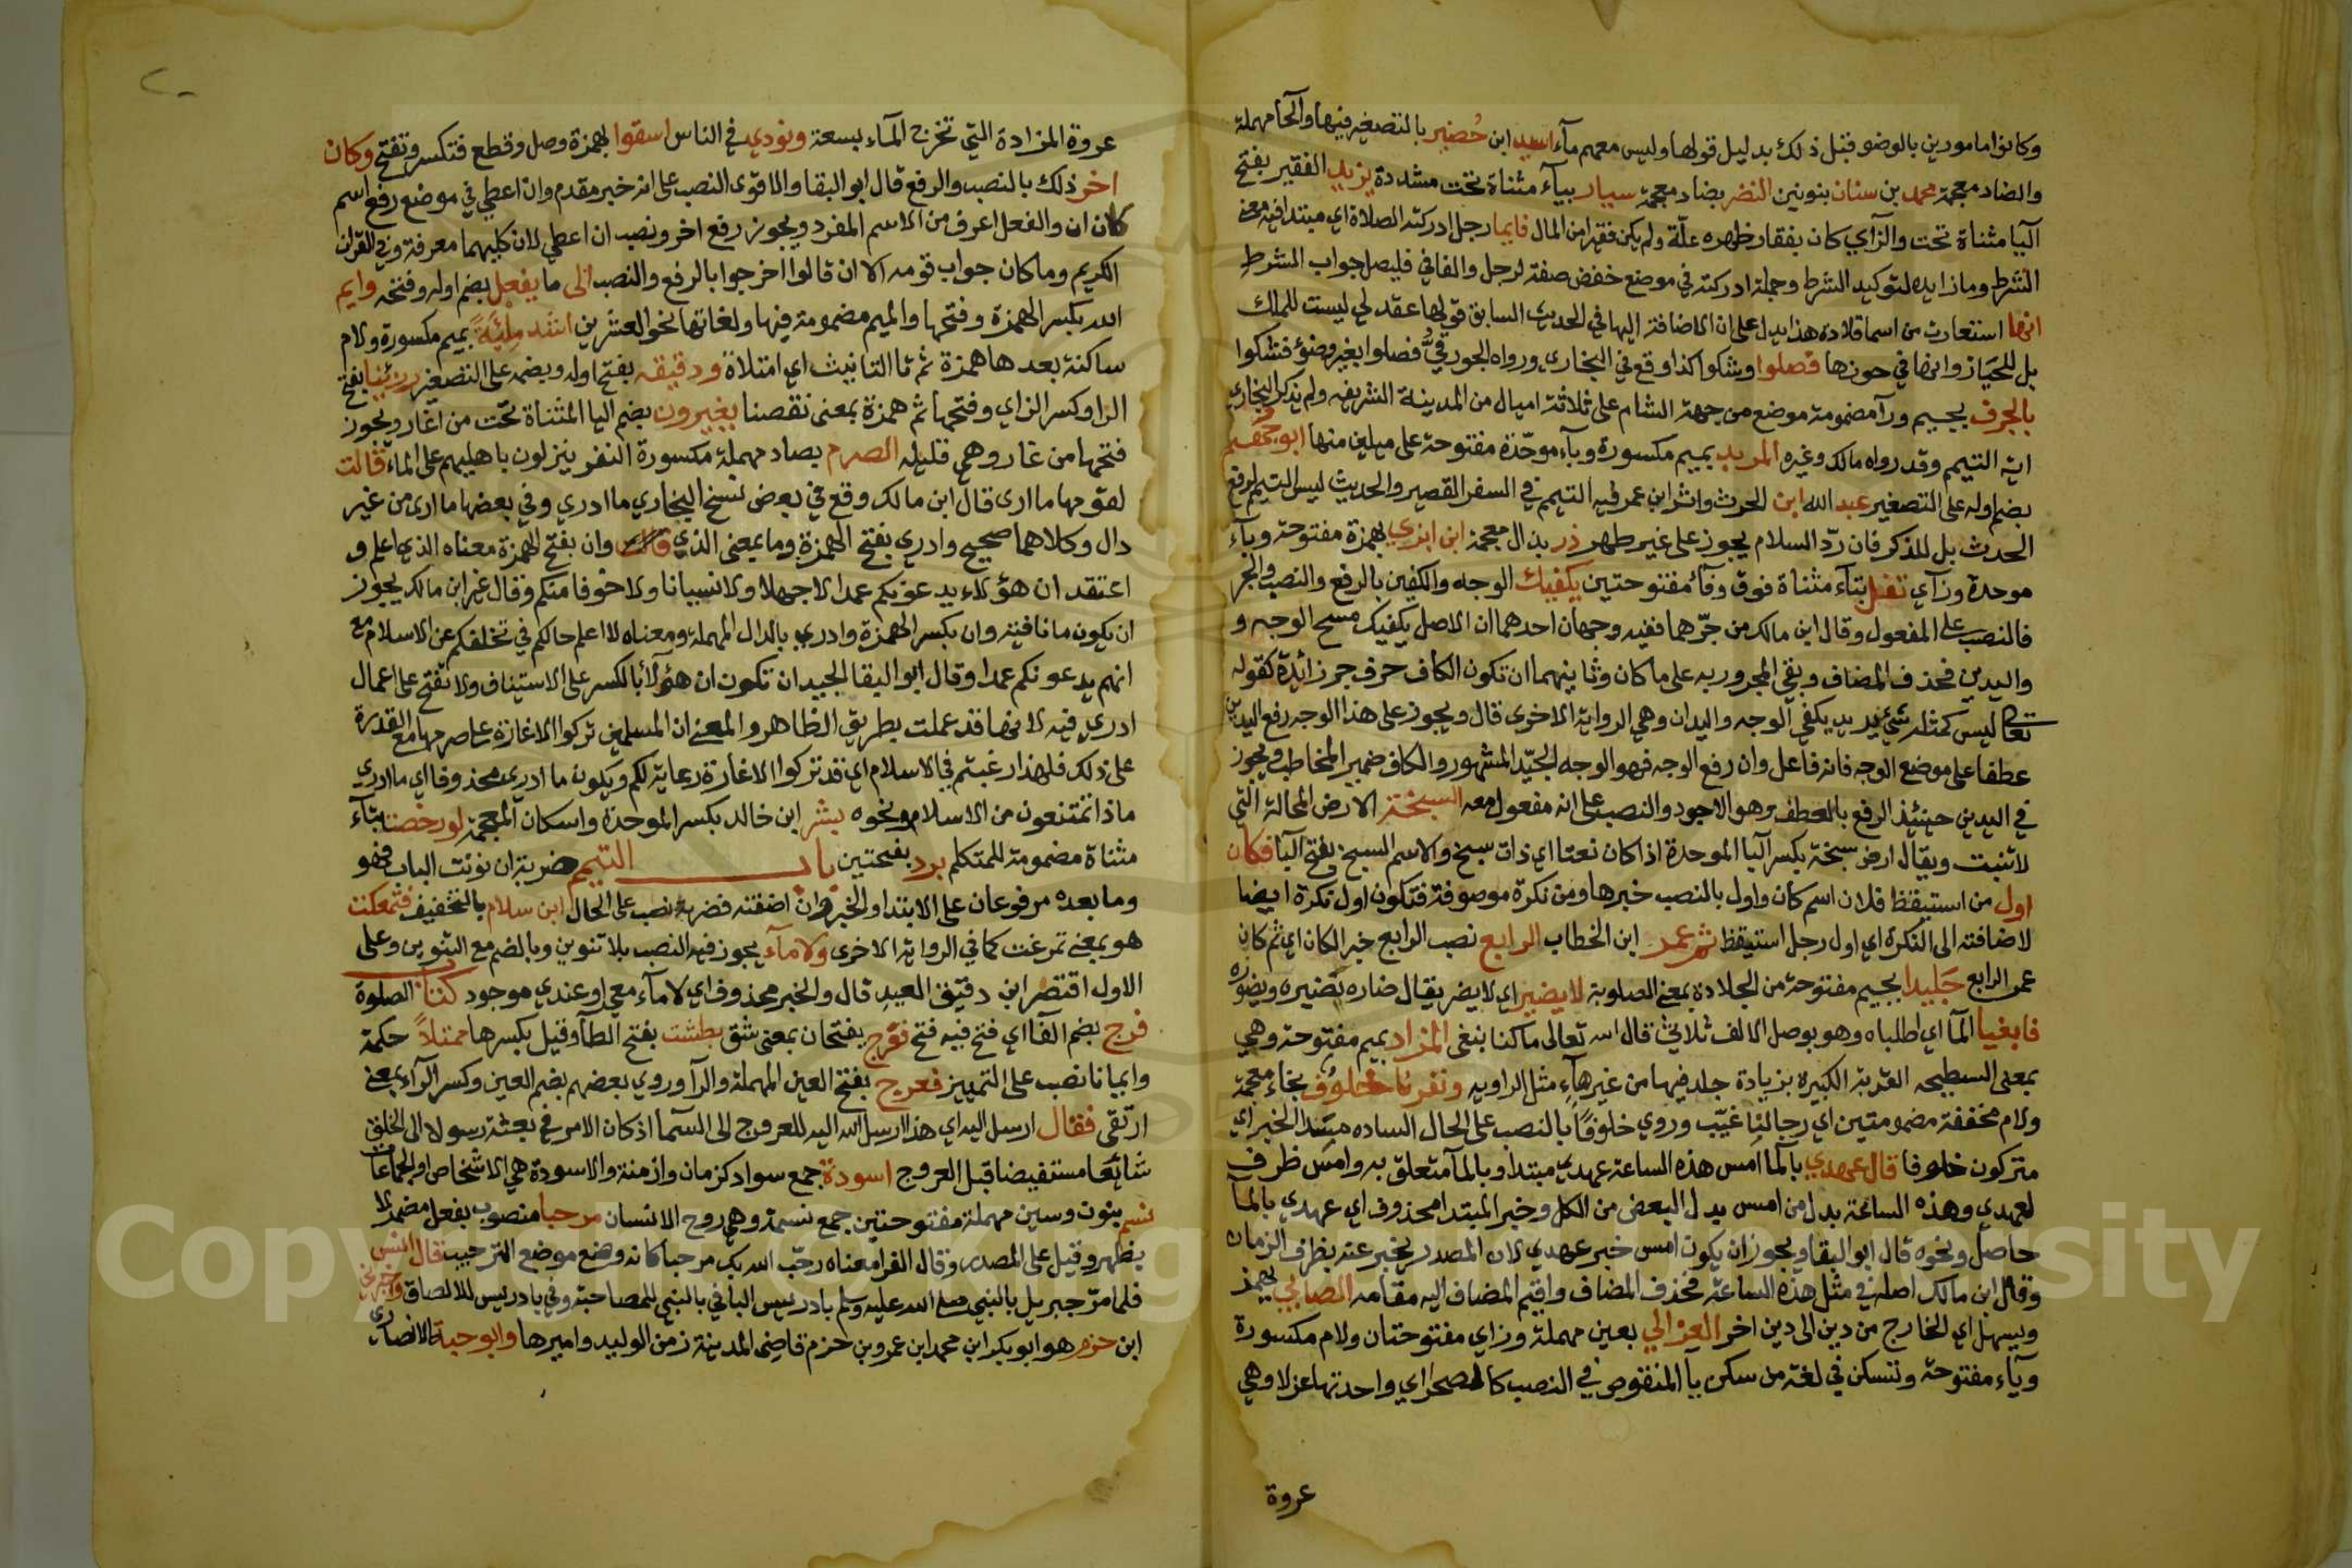 وكانوا مامورين بالوضو قبل ذلك بدليل قولها وليس معهم مآء اسيد ابن حُضير بالتصغير فيها والحآ مهملة
والضاد معجمة محمد بن سنان بنونين النضر بضاد معجمة سيار بيآء مثناة تحت مشددة يزيد الفقير بفتح
اليا مثناة تحت والزاي كان بفقار ظهره علّة ولم يكن فقيرا من المال فايما رجل ادركته الصلاة اي مبتدا فيه معنى
الشرط وما زايده لتوكيد الشرط وجملة ادركته في موضع خفض صفة لرجل والفا في فليصل جواب الشرط
انها استعارت من اسما قلادة هذا يدل على ان الاضافة اليها في الحديث السابق قولها عقد لي ليست للملك
بل للحيازة وانها في حوزها فصلوا وشكوا كذا وقع في البخاري ورواه الجورقيُّ فصلوا بغير وضوٍ فشكوا
بالجرف بجيم ورآ مضمومة موضع من جهة الشام على ثلاثة اميال من المدينة الشريفه ولم يذكر البخاري
انه التيمم وقد رواه مالك وغيره المربد بميم مكسورة وبآء موحّدة مفتوحة على ميلين منها ابو جُهَيم
بضم اوله على التصغير عبد الله ابن الحرث واثر ابن عمر فيه التيمم في السفر القصير والحديث ليس التيمم لرفع
الحدث بل للذكر فان ردّ السلام يجوز على غير طهر ذر بذال معجمة ابن ابزي بهمزة مفتوحة وبآء
موحدة وزآي تفل بتآء مثناة فوق وفآء مفتوحتين يكفيك الوجه والكفين بالرفع والنصب والجر
فالنصب على المفعول وقال ابن مالك من جرّهما ففيه وجهان احدهما ان الاصل يكفيك مسح الوجه و
واليدين فحذف المضاف وبقي المجرور به على ما كان وثانيهما ان تكون الكاف حرف جر زائدة كقوله
تعالى ليس كمثله شيء يريد يكفي الوجه واليدان وهي الرواية الاخرى قال ويجوز على هذا الوجه رفع اليدين
عطفا على موضع الوجه فانه فاعل وان رفع الوجه فهو الوجه الجيّد المشهور والكاف ضمير المخاطب ويجوز
في اليدين حينئذ الرفع بالعطف وهو الاجود والنصب على انه مفعول معه السبخة الارض المالحة التي
لا تنبت ويقال ارض سبخة بكسر البا الموحدة اذا كان نعتا اي ذات سبخ والاسم السبخ بفتح البا فكان
اول من استيقظ فلان اسم كان واول بالنصب خبرها ومن نكرة موصوفة فتكون اول نكرة ايضا
لاضافته الى النكرة اي اول رجل استيقظ ثم عمر ابن الخطاب الرابع نصب الرابع خبر الكان اي ثم كان
عمر الرابع جَليدا بجيم مفتوحة من الجلادة بمعنى الصلوبة لا يضير اي لا يضر يقال ضاره يَضيره ويضوره
فابغيا المآ اي اطلباه وهو بوصل الالف ثلاثي قال الله تعالى ما كنا نبغي المزاد بميم مفتوحة وهي
بمعنى السطيحه القربة الكبيرة بزيادة جلد فيها من غيرهآ مثل الراويه ونفرنا خلوف بخاء معجمة
ولام مخففة مضمومتين اي رجالنا غيّب وروي خلوفًا بالنصب على الحال الساده مسَد الخبر اي
متركون خلوفا قال عهدي بالمآ امس هذه الساعة عهدي مبتدا وبالمآ متعلق به وامس ظرف
لعهدي وهذه الساعة بدل من امس بدل البعض من الكل وخبر المبتدا محذوف اي عهدي بالمآ
حاصل ونحوه قال ابو البقا ويجوز ان يكون امس خبر عهدي لان المصدر يخبر عنه بظرف الزمان
وقال ابن مالك اصله في مثل هذه الساعة فحذف المضاف واقيم المضاف اليه مقامه الصابي بهمز
ويسهل اي الخارج من دين الى دين اخر العزالي بعين مهملة وزاي مفتوحتان ولام مكسورة
ويآء مفتوحة وتسكن في لغة من سكن يا المنقوص في النصب كالصحراي واحدتها عزلا وهي
عروة
عروة المزادة التي تخرج المآء بسعة ونودي في الناس اسقوا بهمزة وصل وقطع فتكسر وتفتح وكان
اخر ذلك بالنصب والرفع قال ابو البقا والاقوى النصب على انه خبر مقدم وان اعطي في موضع رفع اسم
كان ان والفعل اعرف من الاسم المفرد ويجوز رفع اخر ونصب ان اعطي لان كليهما معرفة وفي القران
الكريم وما كان جواب قومه الا ان قالوا اخرجوا بالرفع والنصب الى ما يفعل بضم اوله وفتحه وايم
الله بكسر الهمزة وفتحها والميم مضمومة فيها ولغاتها نحو العشرين اشد مِلئَةً بميم مكسورة ولام
ساكنة بعدها همزة ثم تا التانيث اي امتلاة ودقيقه بفتح اوله ويضمه على التصغير رزئنا بفتح
الرا وكسر الزاي وفتحها ثم همزة بمعنى نقصنا يغيرون بضم اليا المثناة تحت من اغار ويجوز
فتحها من غار وهي قليله الصرم بصاد مهملة مكسورة النفر ينزلون باهليهم على الماء فقالت
لقومها ما ارى قال ابن مالك وقع في بعض نسخ البخاري ما ادري وفي بعضها ما ارى من غير
دال وكلاهما صحيح وادري بفتح الهمزة وما بمعنى الذي وان بفتح الهمزة معناه الذي اعلم و
اعتقد ان هؤلاء يدعونكم عمدا لا جهلا ولا نسيانا ولا خوفا منكم وقال غير ابن مالك يجوز
ان يكون ما نافية وان بكسر الهمزة وادري بالدال المهملة ومعناه لا اعلم حالكم في تخلفكم عن الاسلام مع
انهم يدعونكم عمدا وقال ابو البقا الجيد ان تكون ان هؤلآ بالكسر على الاستيناف ولا تفتح على اعمال
ادري فيه لانها قد عملت بطريق الظاهر والمعنى ان المسلمين تركوا الاغارة على صرمها مع القدرة
على ذلك فلهذا رغبتم في الاسلام اي قد تركوا الاغارة رعاية لكم ويكون ما ادري محذوفا اي ما ادري
ماذا تمتنعون من الاسلام ونحوه بشر ابن خالد بكسر الموحدة واسكان المعجمة لو رخصت بتآء
مثناة مضمومة للمتكلم برد بفتحتين باب التيمم ضربة ان نونت الباب فهو
وما بعده مرفوعان على الابتدا والخبر وان اضفته فضربة نصب على الحال ابن سلام بالتخفيف فتمعكت
هو بمعنى تمرغت كما في الرواية الاخرى ولا مآء يجوز فيه النصب بلا تنوين وبالضم مع التنوين وعلى
الاول اقتصر ابن دقيق العيد قال والخبر محذوف اي لا مآء معي او عندي موجود كتاب الصلوة
فرج بضم الفآ اي فتح فيه فتح ففرج بفتحان بمعنى شق بطشت بفتح الطآ وقيل بكسرها ممتلأ حكمة
وايمانا نصب على التمييز فعرج بفتح العين المهملة والرآ وروي بعضهم بضم العين وكسر الرآء بمعنى
ارتقى فقال ارسل اليه اي هذا ارسل الله اليه للعروج الى السمآ اذ كان الامر في بعثه رسولا الى الخلق
شائعا مستفيضا قبل العروج اسودة جمع سواد كزمان وازمنة والاسودة هي الاشخاص او الجماعات
نسم بنون وسين مهملة مفتوحتين جمع نسمة وهي روح الانسان مرحبا منصوب بفعل مضمر لا
يظهر وقيل على المصدر وقال الفرا معناه رحّب الله بك مرحبا كانه وضع موضع الترحيب قال انس
فلما مرّ جبريل بالنبي صلى الله عليه وسلم بادريس البا في بالنبي للمصاحبة وفي بادريس للالصاق واخبرني
ابن حزم هو ابو بكر ابن محمد ابن عمرو بن حزم قاضي المدينة زمن الوليد واميرها وابو حبة الانصاري